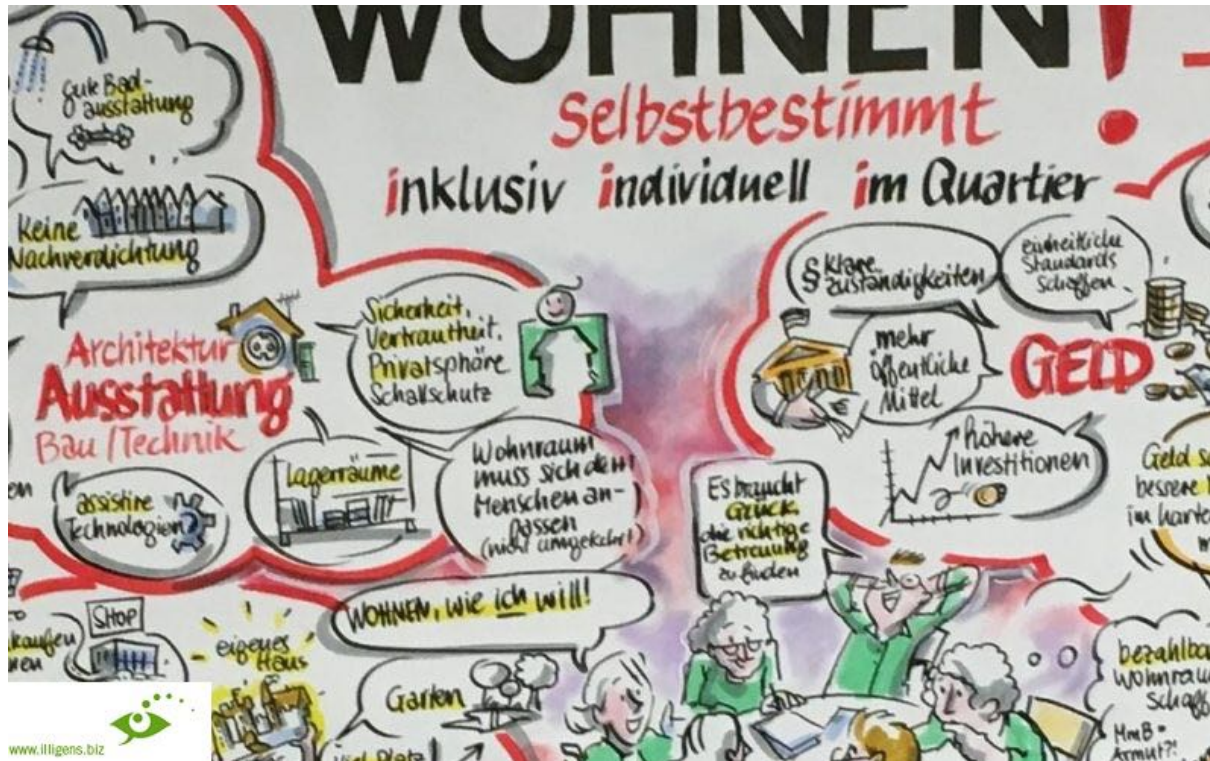 WOHNEN!
Selbstbestimmt
inklusiv individuell im Quartier
gute Bad-
ausstattung
Keine
Nachverdichtung
Architektur
Ausstattung
Bau / Technik
Sicherheit,
Vertrautheit,
Privatsphäre
Schallschutz
assistive
Technologien
Lagerräume
Wohnraum
muss sich dem
Menschen an-
passen
(nicht umgekehrt)
§ Klare
Zuständigkeiten
einheitliche
Standards
schaffen
mehr
öffentliche
Mittel
€
GELD
höhere
Investitionen
Geld
bessere
im harte
Es braucht
Glück,
die richtige
Betreuung
zu finden
WOHNEN, wie ich will!
SHOP
kaufen
eigenes
Haus
Garten
viel Platz
bezahlba
Wohnraum
schaff
MmB =
Armut?!
www.illigens.biz